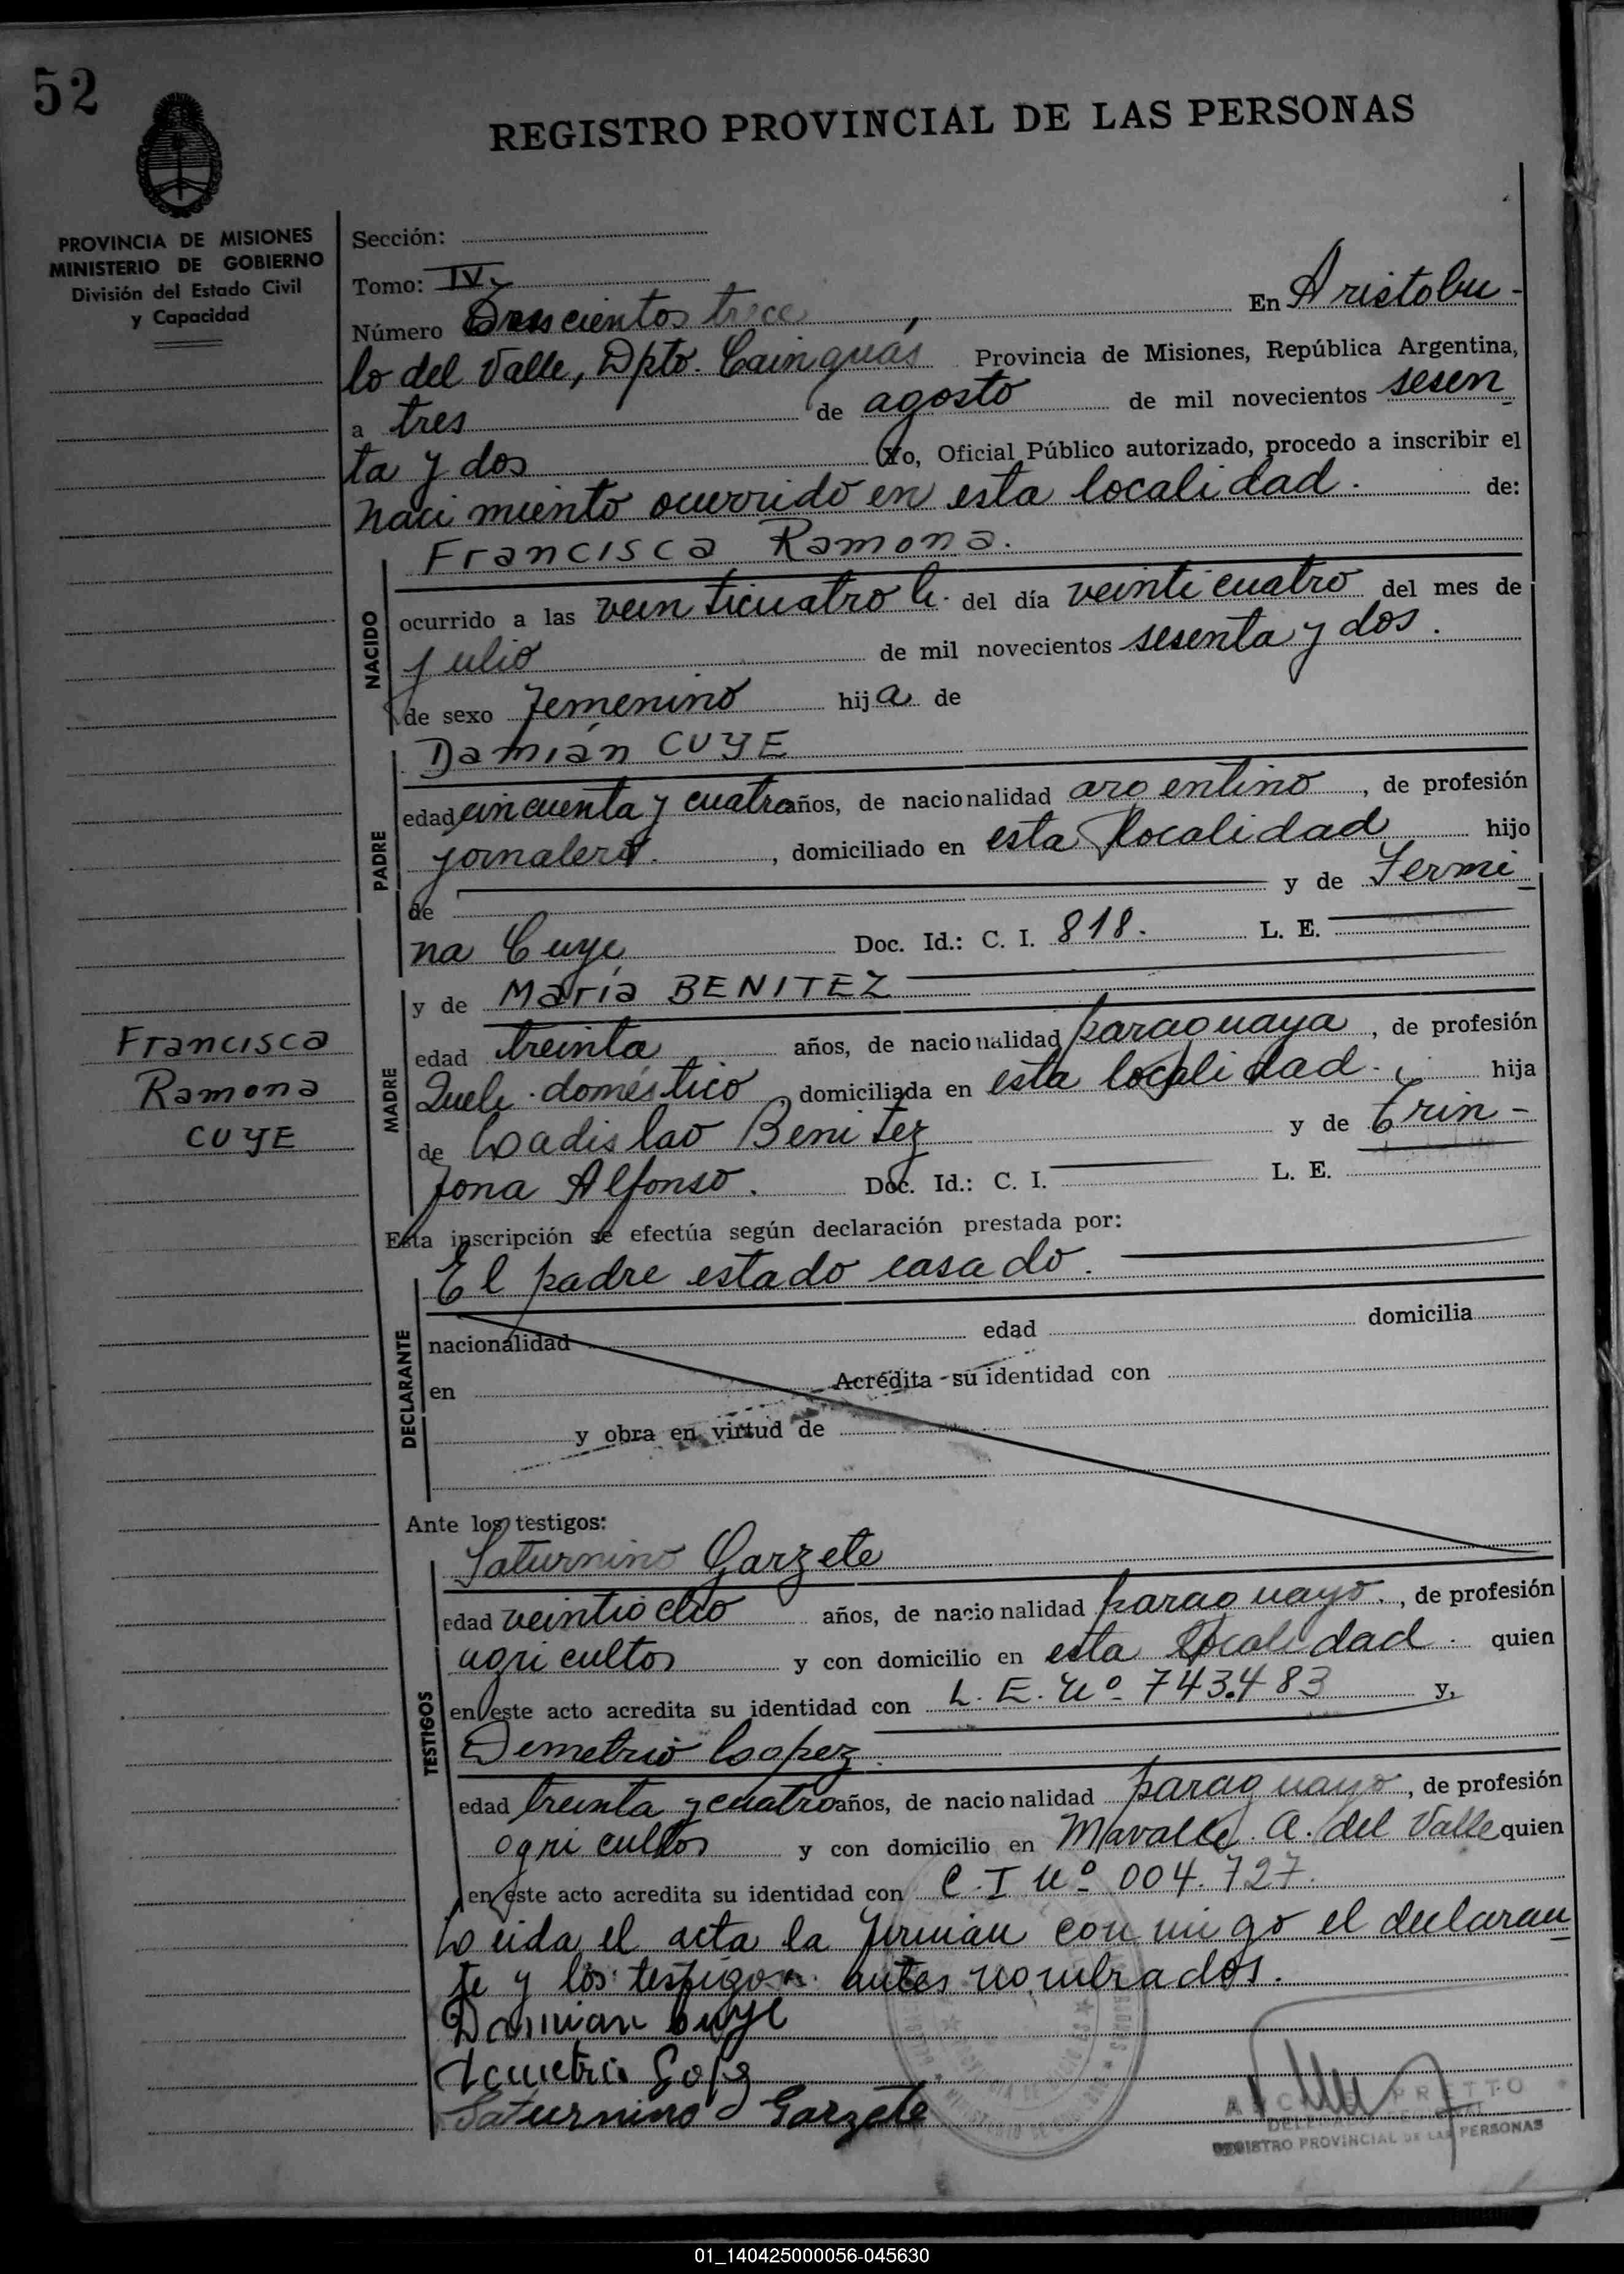 52
REGISTRO PROVINCIAL DE LAS PERSONAS
PROVINCIA DE MISIONES
MINISTERIO DE GOBIERNO
División del Estado Civil
y Capacidad
Sección:
Tomo: IV
Número cientos trece, En Aristobu-
lo del Valle, Dpto. Cainguás Provincia de Misiones, República Argentina,
a tres de agosto de mil novecientos sesen
ta y dos Yo, Oficial Público autorizado, procedo a inscribir el
naci miento ocurrido en esta localidad. de:
Francisca Ramona.
NACIDO
ocurrido a las veinticuatro h. del día veinticuatro del mes de
julio de mil novecientos sesenta y dos.
de sexo femenino hija de
PADRE
Damián CUYE
edad cincuenta y cuatro años, de nacionalidad argentino, de profesión
jornalero., domiciliado en esta localidad hijo
de y de Fermi
na Cuye Doc. Id.: C. I. 818. L. E.
MADRE
y de María BENITEZ
edad treinta años, de nacionalidad paraguaya, de profesión
Queh. doméstico, domiciliada en esta localidad. hija
de Ladislao Benitez y de
Alfonso. Doc. Id.: C. I. L. E.
Francisca
Ramona
CUYE
Esta inscripción se efectúa según declaración prestada por:
El padre estado casado.
DECLARANTE
nacionalidad edad domicilia
en Acredita su identidad con
y obra en virtud de
Ante los testigos:
TESTIGOS
Saturnino Garzete
edad veintiocho años, de nacionalidad paraguayo., de profesión
agricultor y con domicilio en esta localidad. quien
en este acto acredita su identidad con L. E. Nº 743.483 y,
Demetrio Lopez.
edad treinta y cuatro años, de nacionalidad paraguayo, de profesión
agricultor y con domicilio en A. del Valle quien
en este acto acredita su identidad con C. I Nº 004.727.
Leida el acta la firman conmigo el declaran
te y los testigos antes nombrados.
Damian Cuye
Demetrio Lopez
Saturnino Garzete
PRETTO
REGISTRO PROVINCIAL DE LAS PERSONAS
01_140425000056-045630